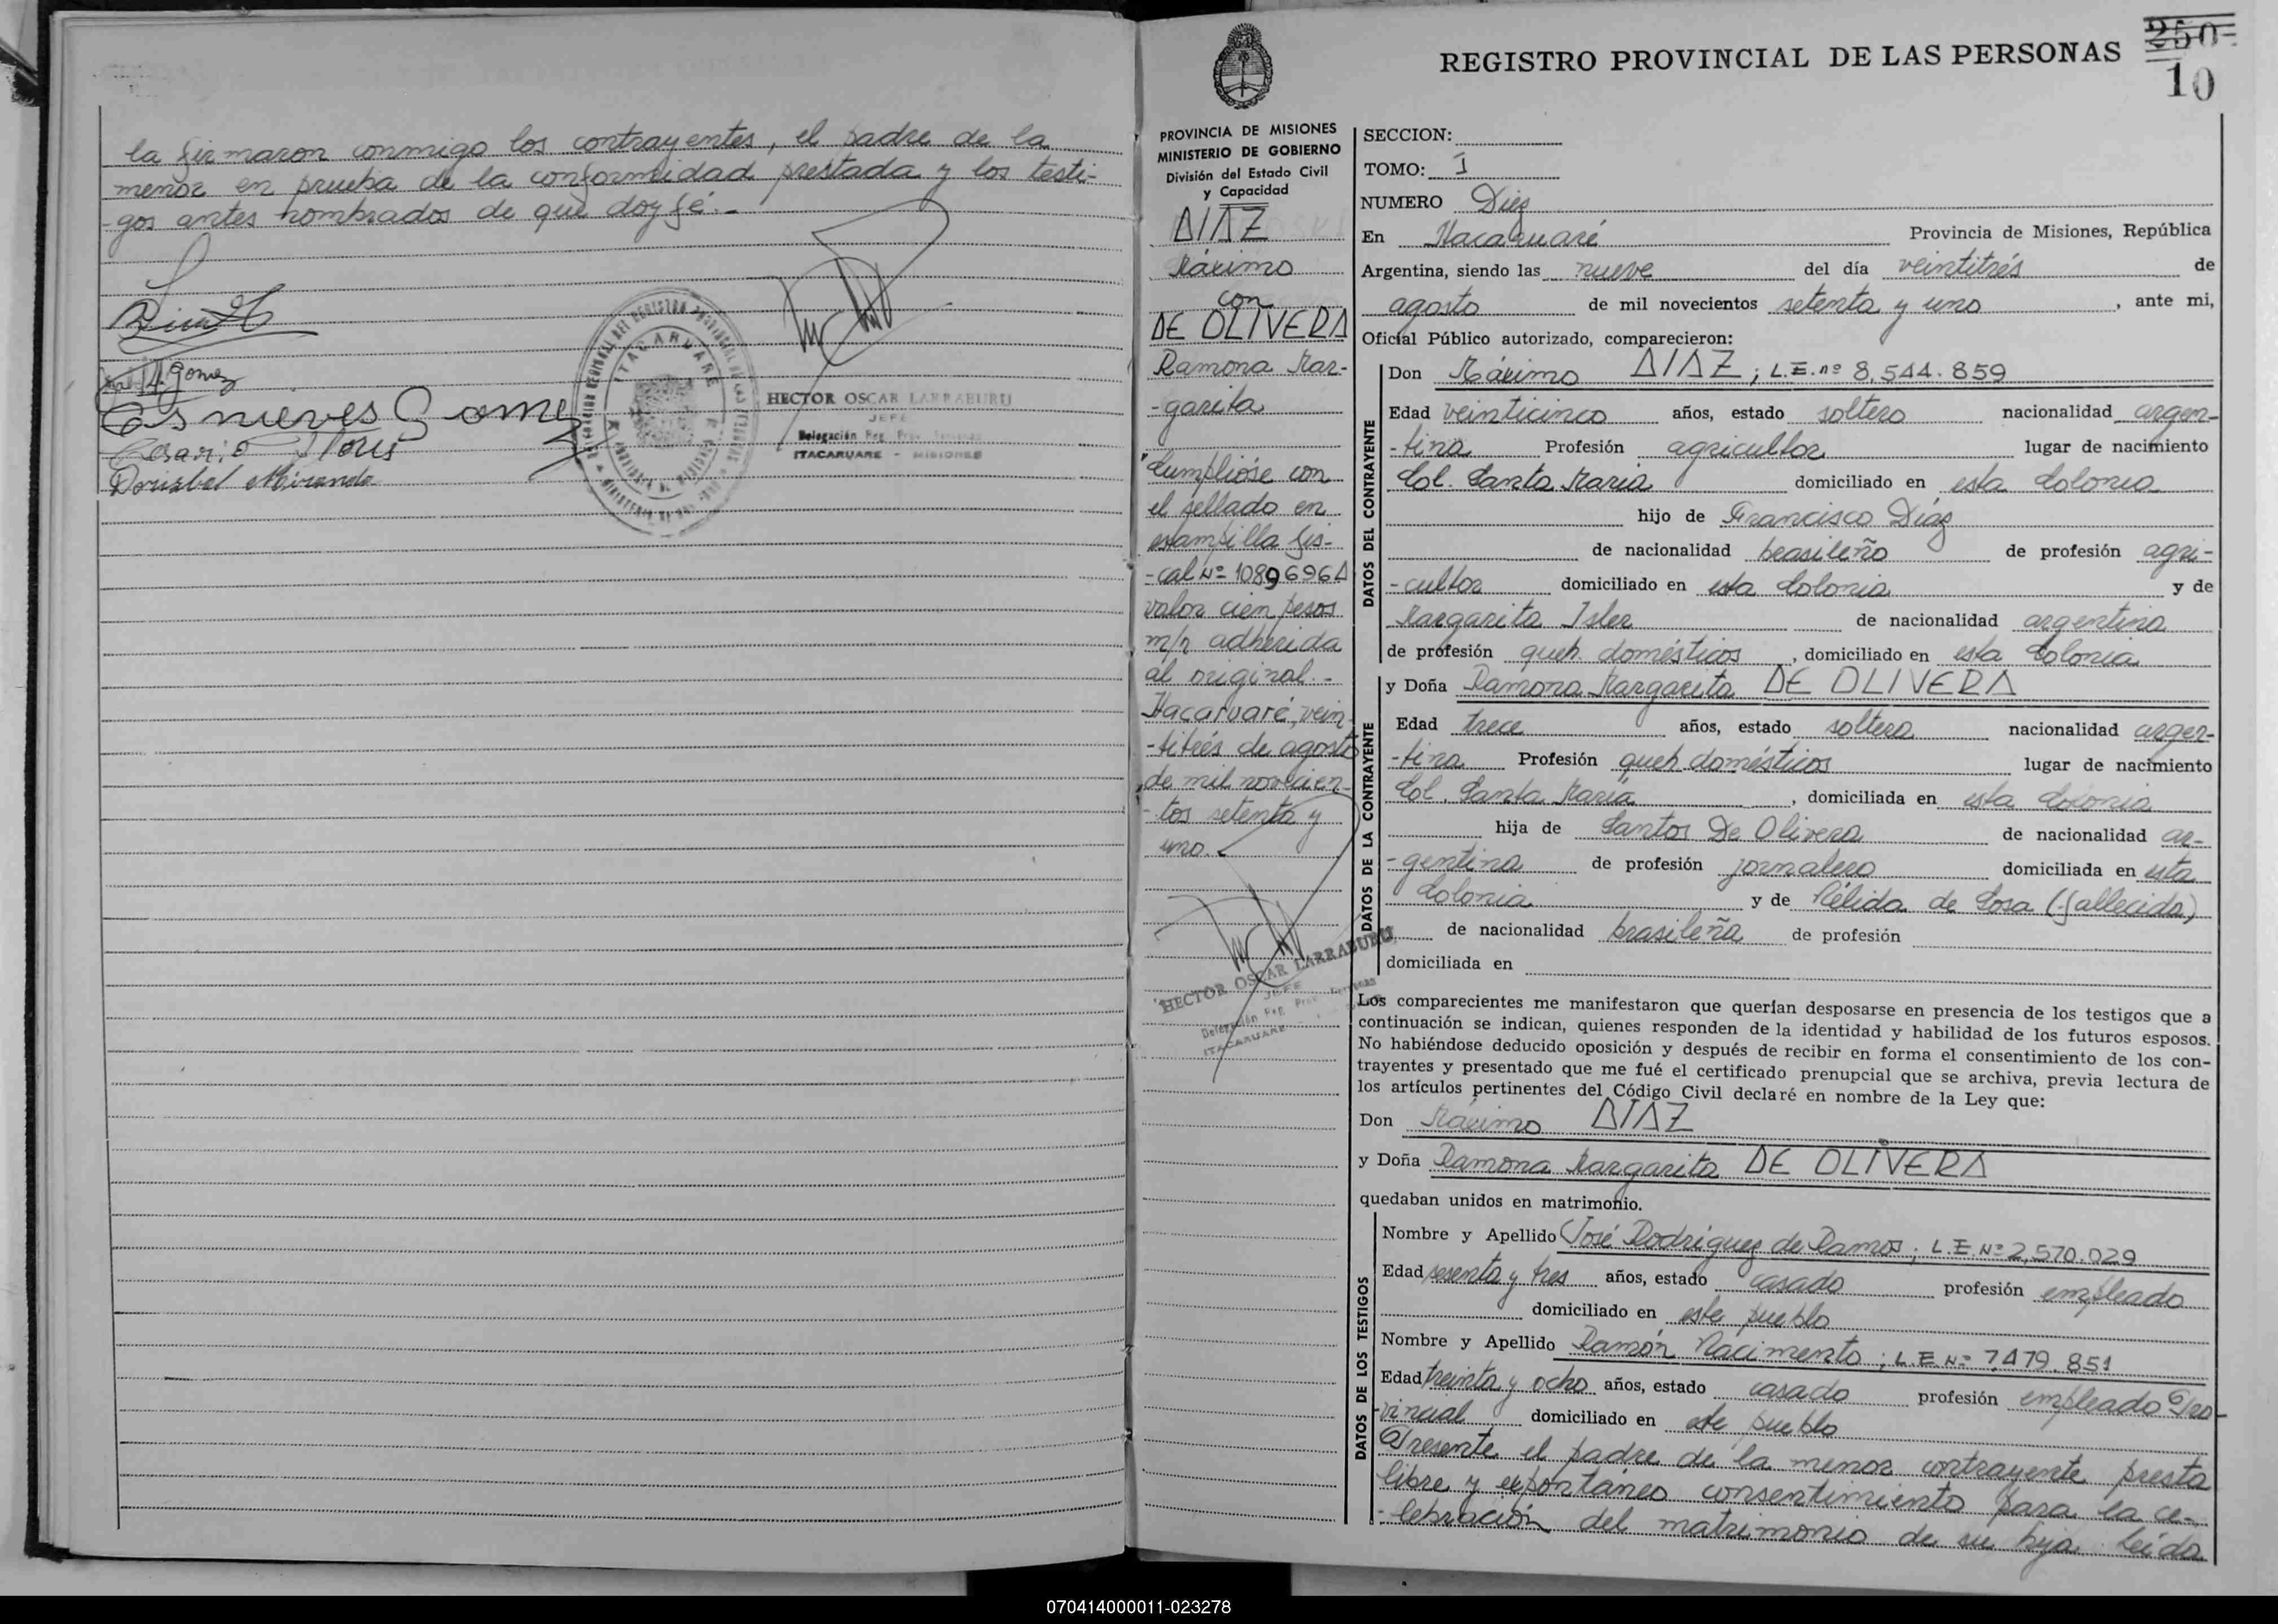 la firmaron conmigo los contrayentes, el padre de la
menor en prueba de la conformidad prestada y los testi-
-gos antes nombrados de que doy fé.-
Gomez
Cesario
Dorisbel Miranda
HECTOR OSCAR LARRABURU
JEFE
Delegación Reg. Prov. Personas
ITACARUARE - MISIONES
ITACARUARE
250
10
REGISTRO PROVINCIAL DE LAS PERSONAS
PROVINCIA DE MISIONES
MINISTERIO DE GOBIERNO
División del Estado Civil
y Capacidad
DIAZ
Máximo
con
DE OLIVERA
Ramona Mar-
-garita
Cumplióse con
el sellado en
estampilla fis-
-cal Nº 1089696A
valor cien pesos
m/n adherida
al original.-
Itacaruaré, vein-
-titrés de agosto
de mil novecien-
-tos setenta y
uno.
HECTOR OSCAR LARRABURU
JEFE
Delegación Reg. Prov. Personas
ITACARUARE
SECCION:
TOMO: I
NUMERO Diez
En Itacaruaré Provincia de Misiones, República
Argentina, siendo las nueve del día veintitrés de
agosto de mil novecientos setenta y uno, ante mi,
Oficial Público autorizado, comparecieron:
DATOS DEL CONTRAYENTE
Don Máximo DIAZ; L.E. nº 8.544.859
Edad veinticinco años, estado soltero nacionalidad argen-
-tina Profesión agricultor lugar de nacimiento
Col. Santa María domiciliado en esta Colonia
hijo de Francisco Díaz
de nacionalidad brasileño de profesión agri-
-cultor domiciliado en esta Colonia y de
Margarita Isler de nacionalidad argentina
de profesión queh. domésticos, domiciliado en esta Colonia
DATOS DE LA CONTRAYENTE
y Doña Ramona Margarita DE OLIVERA
Edad trece años, estado soltera nacionalidad argen-
-tina Profesión queh. domésticos lugar de nacimiento
Col. Santa María, domiciliada en esta Colonia
hija de Santos De Olivera de nacionalidad ar-
-gentina de profesión jornalero domiciliada en esta
Colonia y de Nélida de Sosa (fallecida)
de nacionalidad brasileña de profesión
domiciliada en
Los comparecientes me manifestaron que querían desposarse en presencia de los testigos que a
continuación se indican, quienes responden de la identidad y habilidad de los futuros esposos.
No habiéndose deducido oposición y después de recibir en forma el consentimiento de los con-
trayentes y presentado que me fué el certificado prenupcial que se archiva, previa lectura de
los artículos pertinentes del Código Civil declaré en nombre de la Ley que:
Don Máximo DIAZ
y Doña Ramona Margarita DE OLIVERA
quedaban unidos en matrimonio.
DATOS DE LOS TESTIGOS
Nombre y Apellido José Rodriguez de Ramos; L.E. Nº 2.570.029
Edad sesenta y tres años, estado casado profesión empleado
domiciliado en este pueblo
Nombre y Apellido Ramón Nacimento; L.E. Nº 7.479.851
Edad treinta y ocho años, estado casado profesión empleado Pro-
-vincial domiciliado en este pueblo
Presente el padre de la menor contrayente presta
libre y expontáneo consentimiento para la ce-
-lebración del matrimonio de su hija. Leída
070414000011-023278